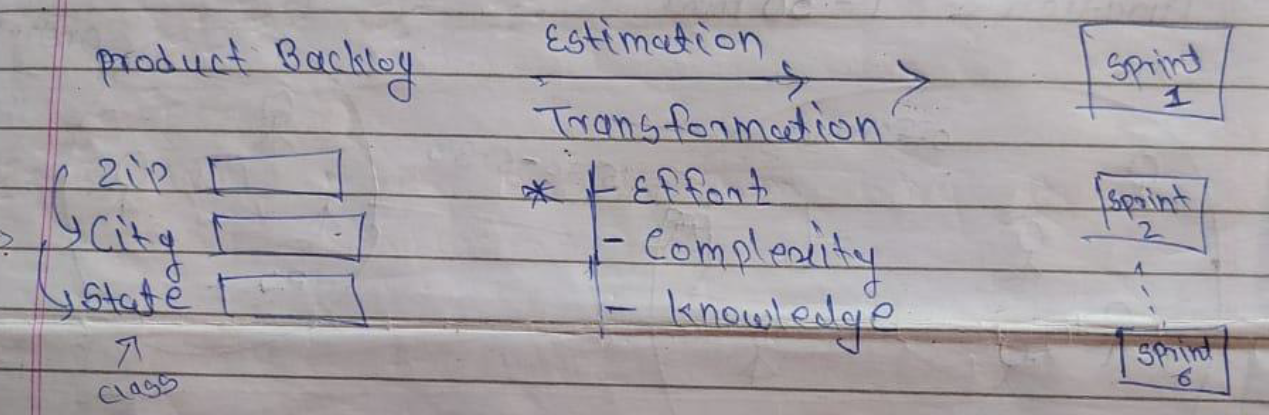 Product Backlog
Estimation
Transformation
Zip
City
State
class
* - Effort
- Complexity
- knowledge
Sprint
1
Sprint
2
Sprint
6